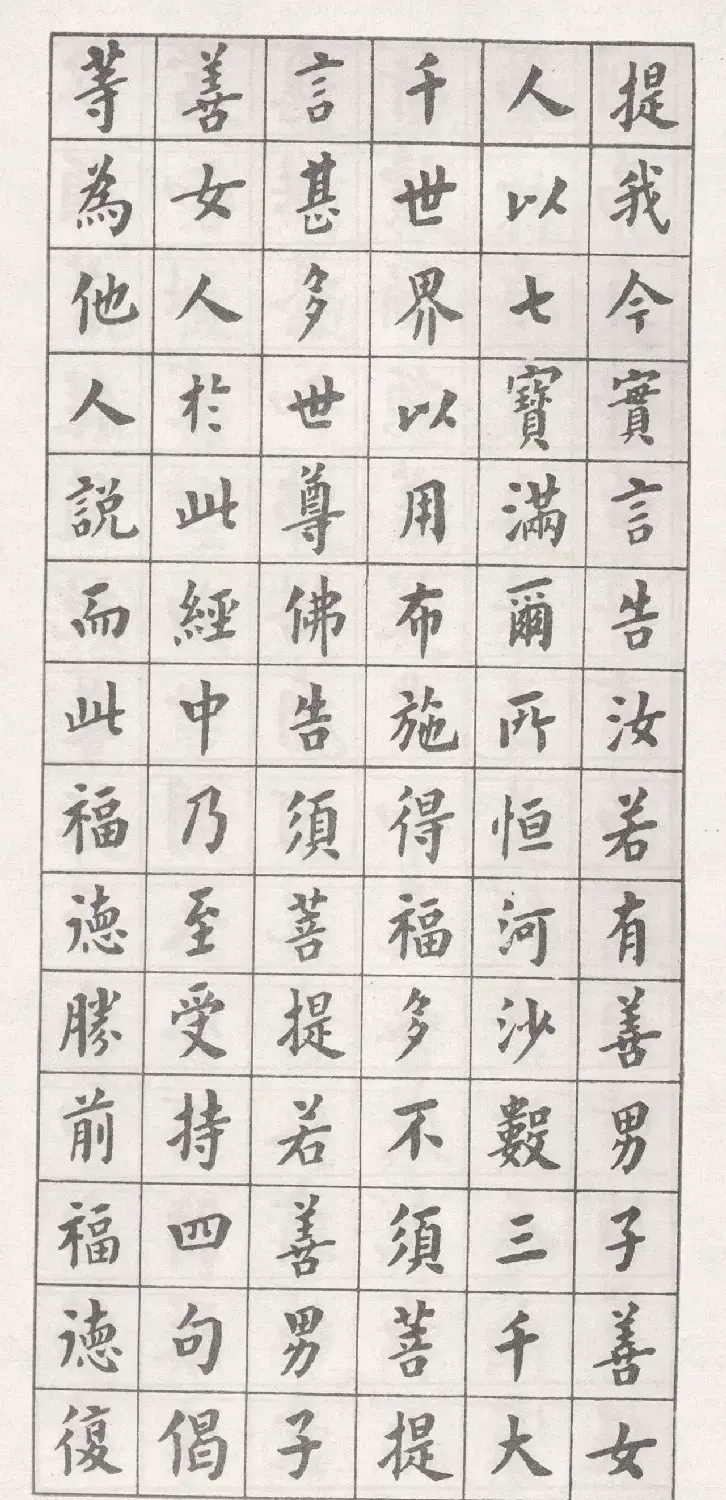 提我今實言告汝若有善男子善女
人以七寶滿爾所恒河沙數三千大
千世界以用布施得福多不須菩提
言甚多世尊佛告須菩提若善男子
善女人於此經中乃至受持四句偈
等為他人說而此福德勝前福德復